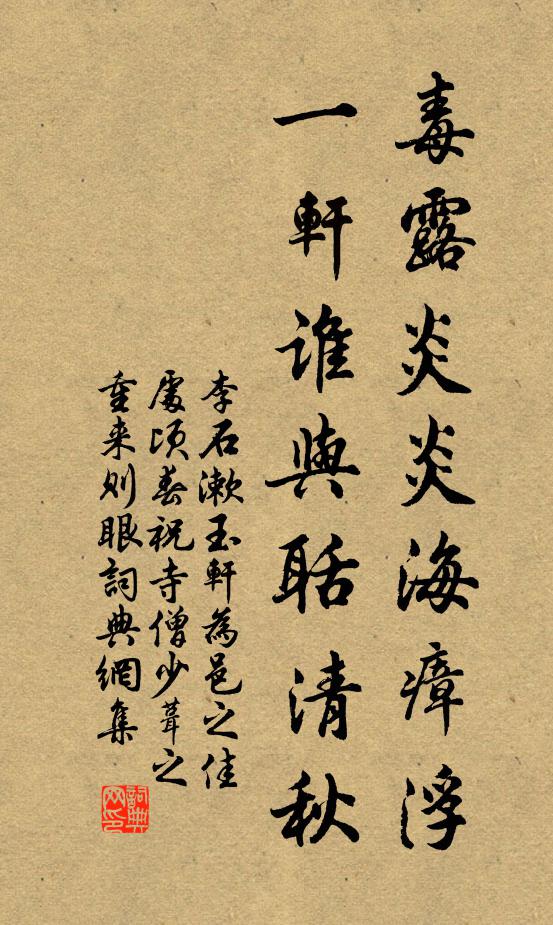 毒露炎炎海瘴浮
一軒誰與聒清秋
李石漱玉軒為邑之佳
處頃嘗祝寺僧少葺之
重来則眼詞典網集
詞典网印